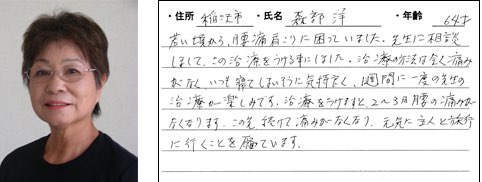 ・住所 稲沢市 ・氏名 森部 洋 ・年齢 64才
若い頃から、腰痛肩こりに困っていました。先生に相談
しまして、この治療をうける事にしました。治療の方法は全く痛み
がなく、いつも寝てしまいそうに気持よく、1週間に一度の先生の
治療が楽しみです。治療をうけますと、2〜3日腰の痛みが
なくなります。この先続けて痛みがなくなり、元気に主人と旅行
に行くことを願っています。